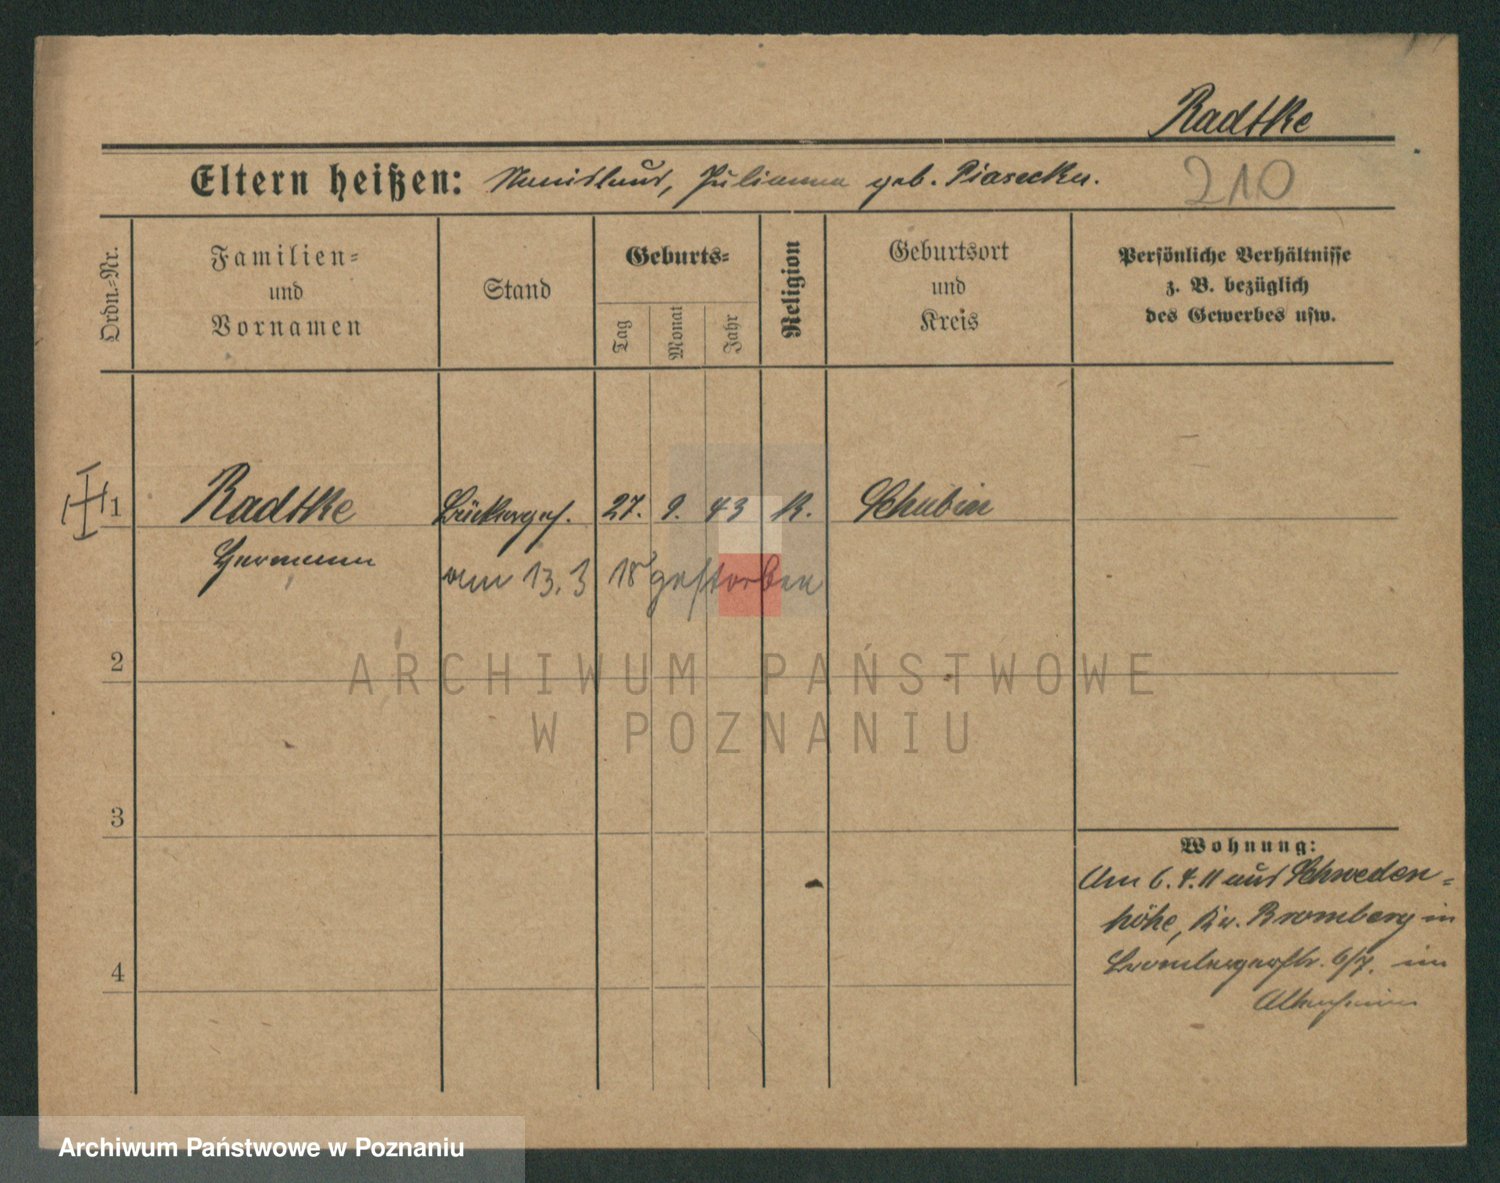 Radtke
Eltern heißen: Stanislaus, Julianna geb. Piasecka.
210
Ordn.-Nr.
Familien-
und
Vornamen
Stand
Geburts-
Tag
Monat
Jahr
Religion
Geburtsort
und
Kreis
Persönliche Verhältnisse
z. B. bezüglich
des Gewerbes usw.
1 Radtke Bäckerges. 27. 9. 43 K. Schubin
Hermann
am 13.3 18 gestorben
2
ARCHIWUM PAŃSTWOWE
W POZNANIU
3
Wohnung:
Am 6.4.11 aus Schweden-
höhe, Kr. Bromberg in
Brombergerstr. 6/7. im
Altersheim
4
Archiwum Państwowe w Poznaniu